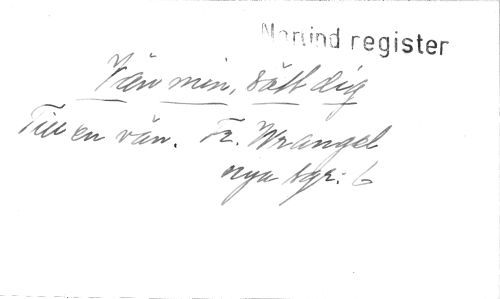 register
Vän min, sätt dig
Till en vän. Fr. Wrangel
nya sgr: 6